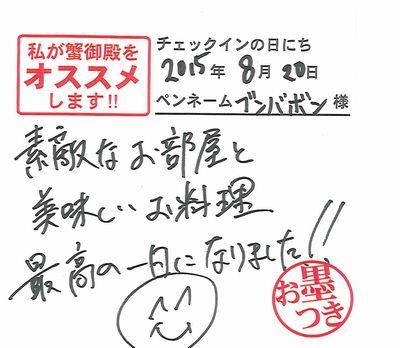 私が蟹御殿を
オススメ
します!!
チェックインの日にち
2015年8月20日
ペンネームブンバボン様
素敵なお部屋と
美味しいお料理
最高の一日になりました!!
お墨つき